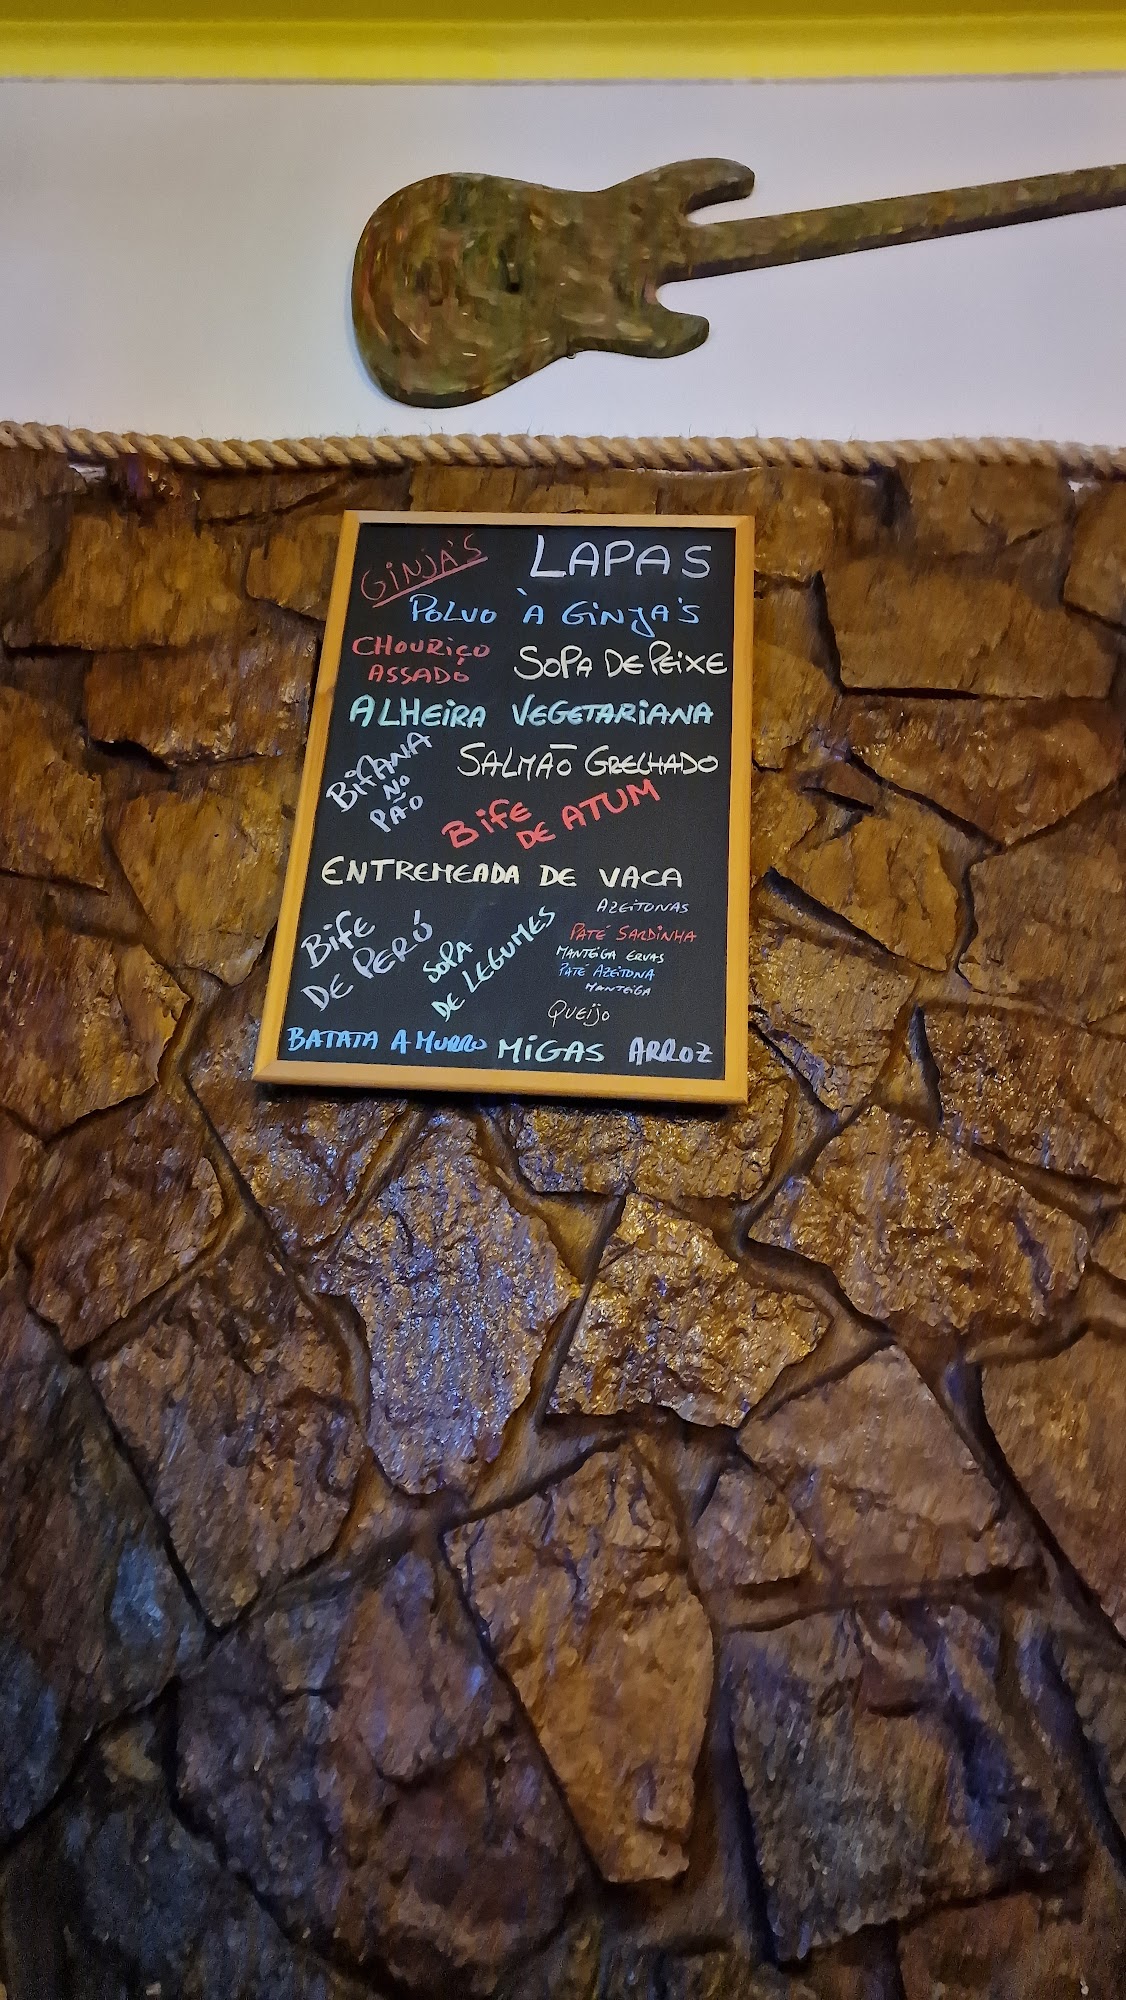 GINJA'S
LAPAS
POLVO À GINJA'S
CHOURIÇO
ASSADO
SOPA DE PEIXE
ALHEIRA VEGETARIANA
BIFANA
NO
PÃO
SALMÃO GRELHADO
BIFE
DE ATUM
ENTREMEADA DE VACA
BIFE
DE PERÚ
SOPA
DE LEGUMES
AZEITONAS
PATÉ SARDINHA
MANTEIGA ERVAS
PATÉ AZEITONA
MANTEIGA
QUEIJO
BATATA A MURRO
MIGAS
ARROZ